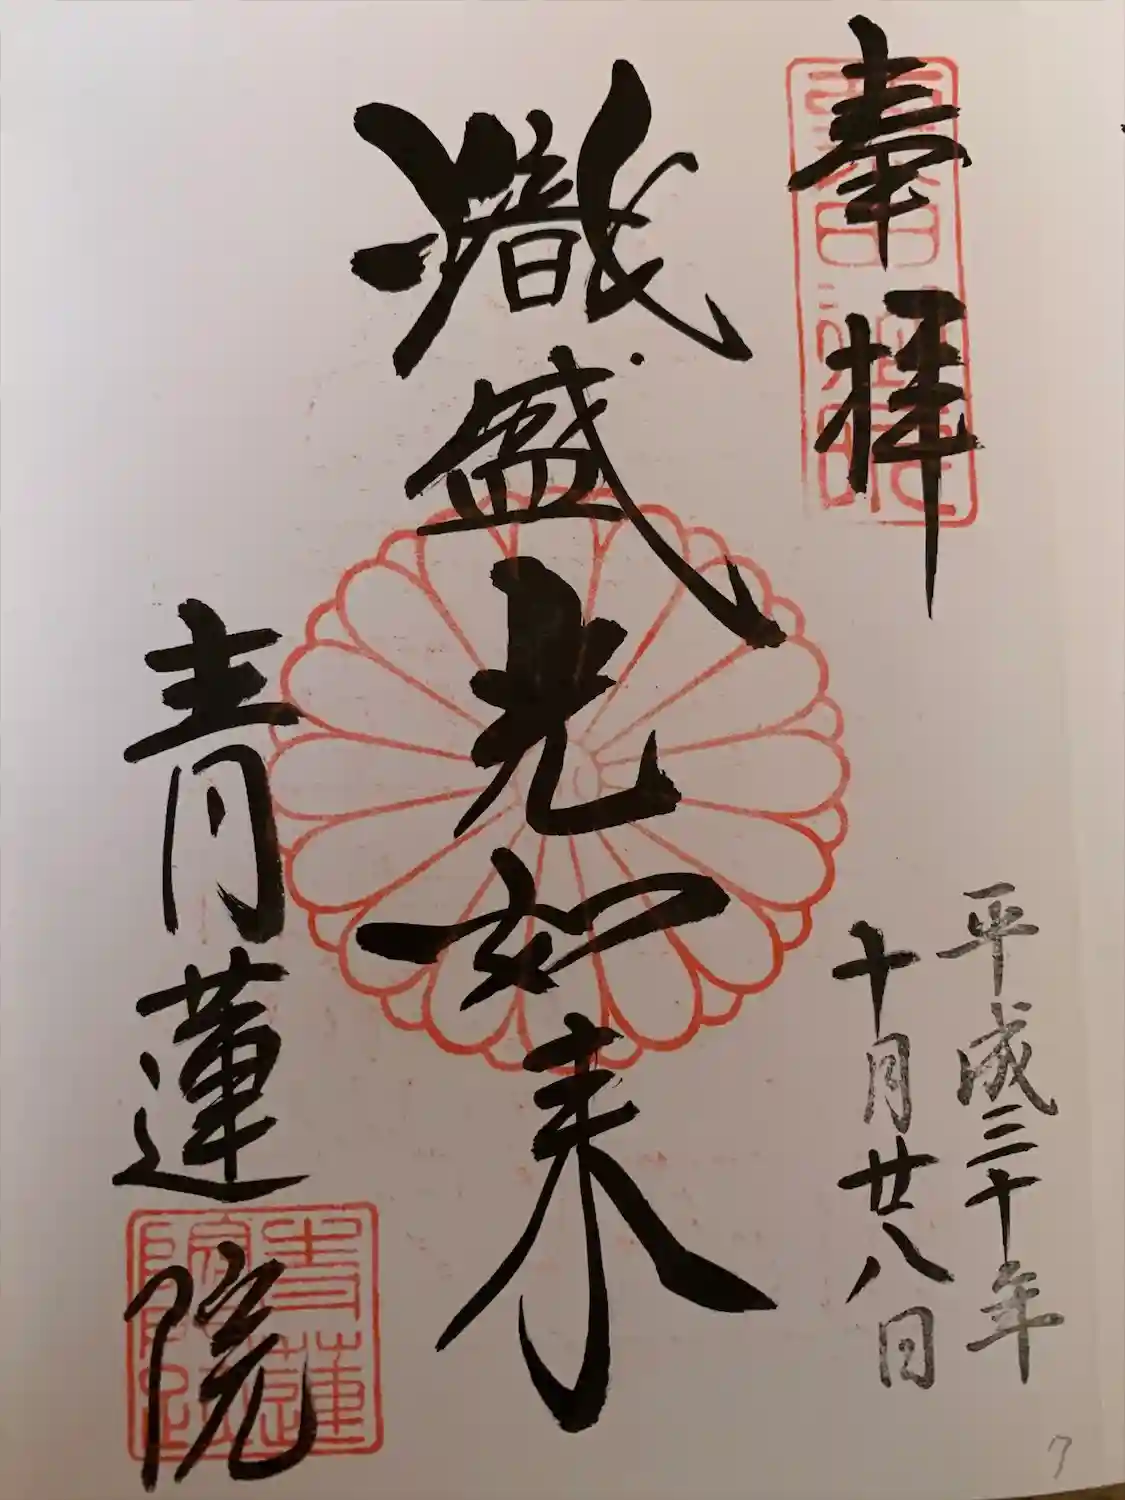 奉拝
平成三十年
十月廿八日
熾盛光如来
青蓮院
7